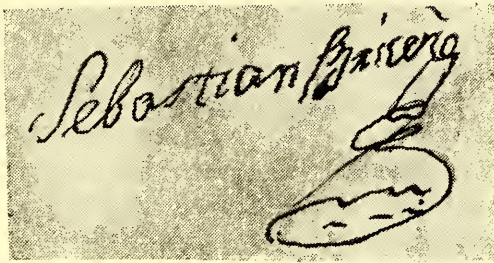 Sebastian Briceño